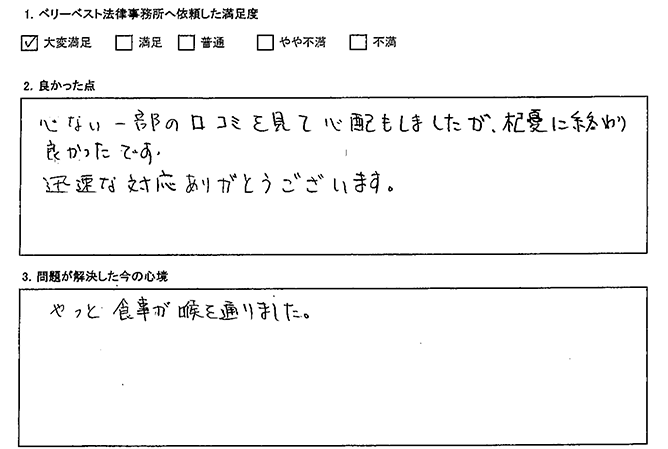 1. ベリーベスト法律事務所へ依頼した満足度
☑ 大変満足 □ 満足 □ 普通 □ やや不満 □ 不満
2. 良かった点
心ない一部の口コミを見て心配もしましたが、杞憂に終わり
良かったです。
迅速な対応ありがとうございます。
3. 問題が解決した今の心境
やっと食事が喉を通りました。